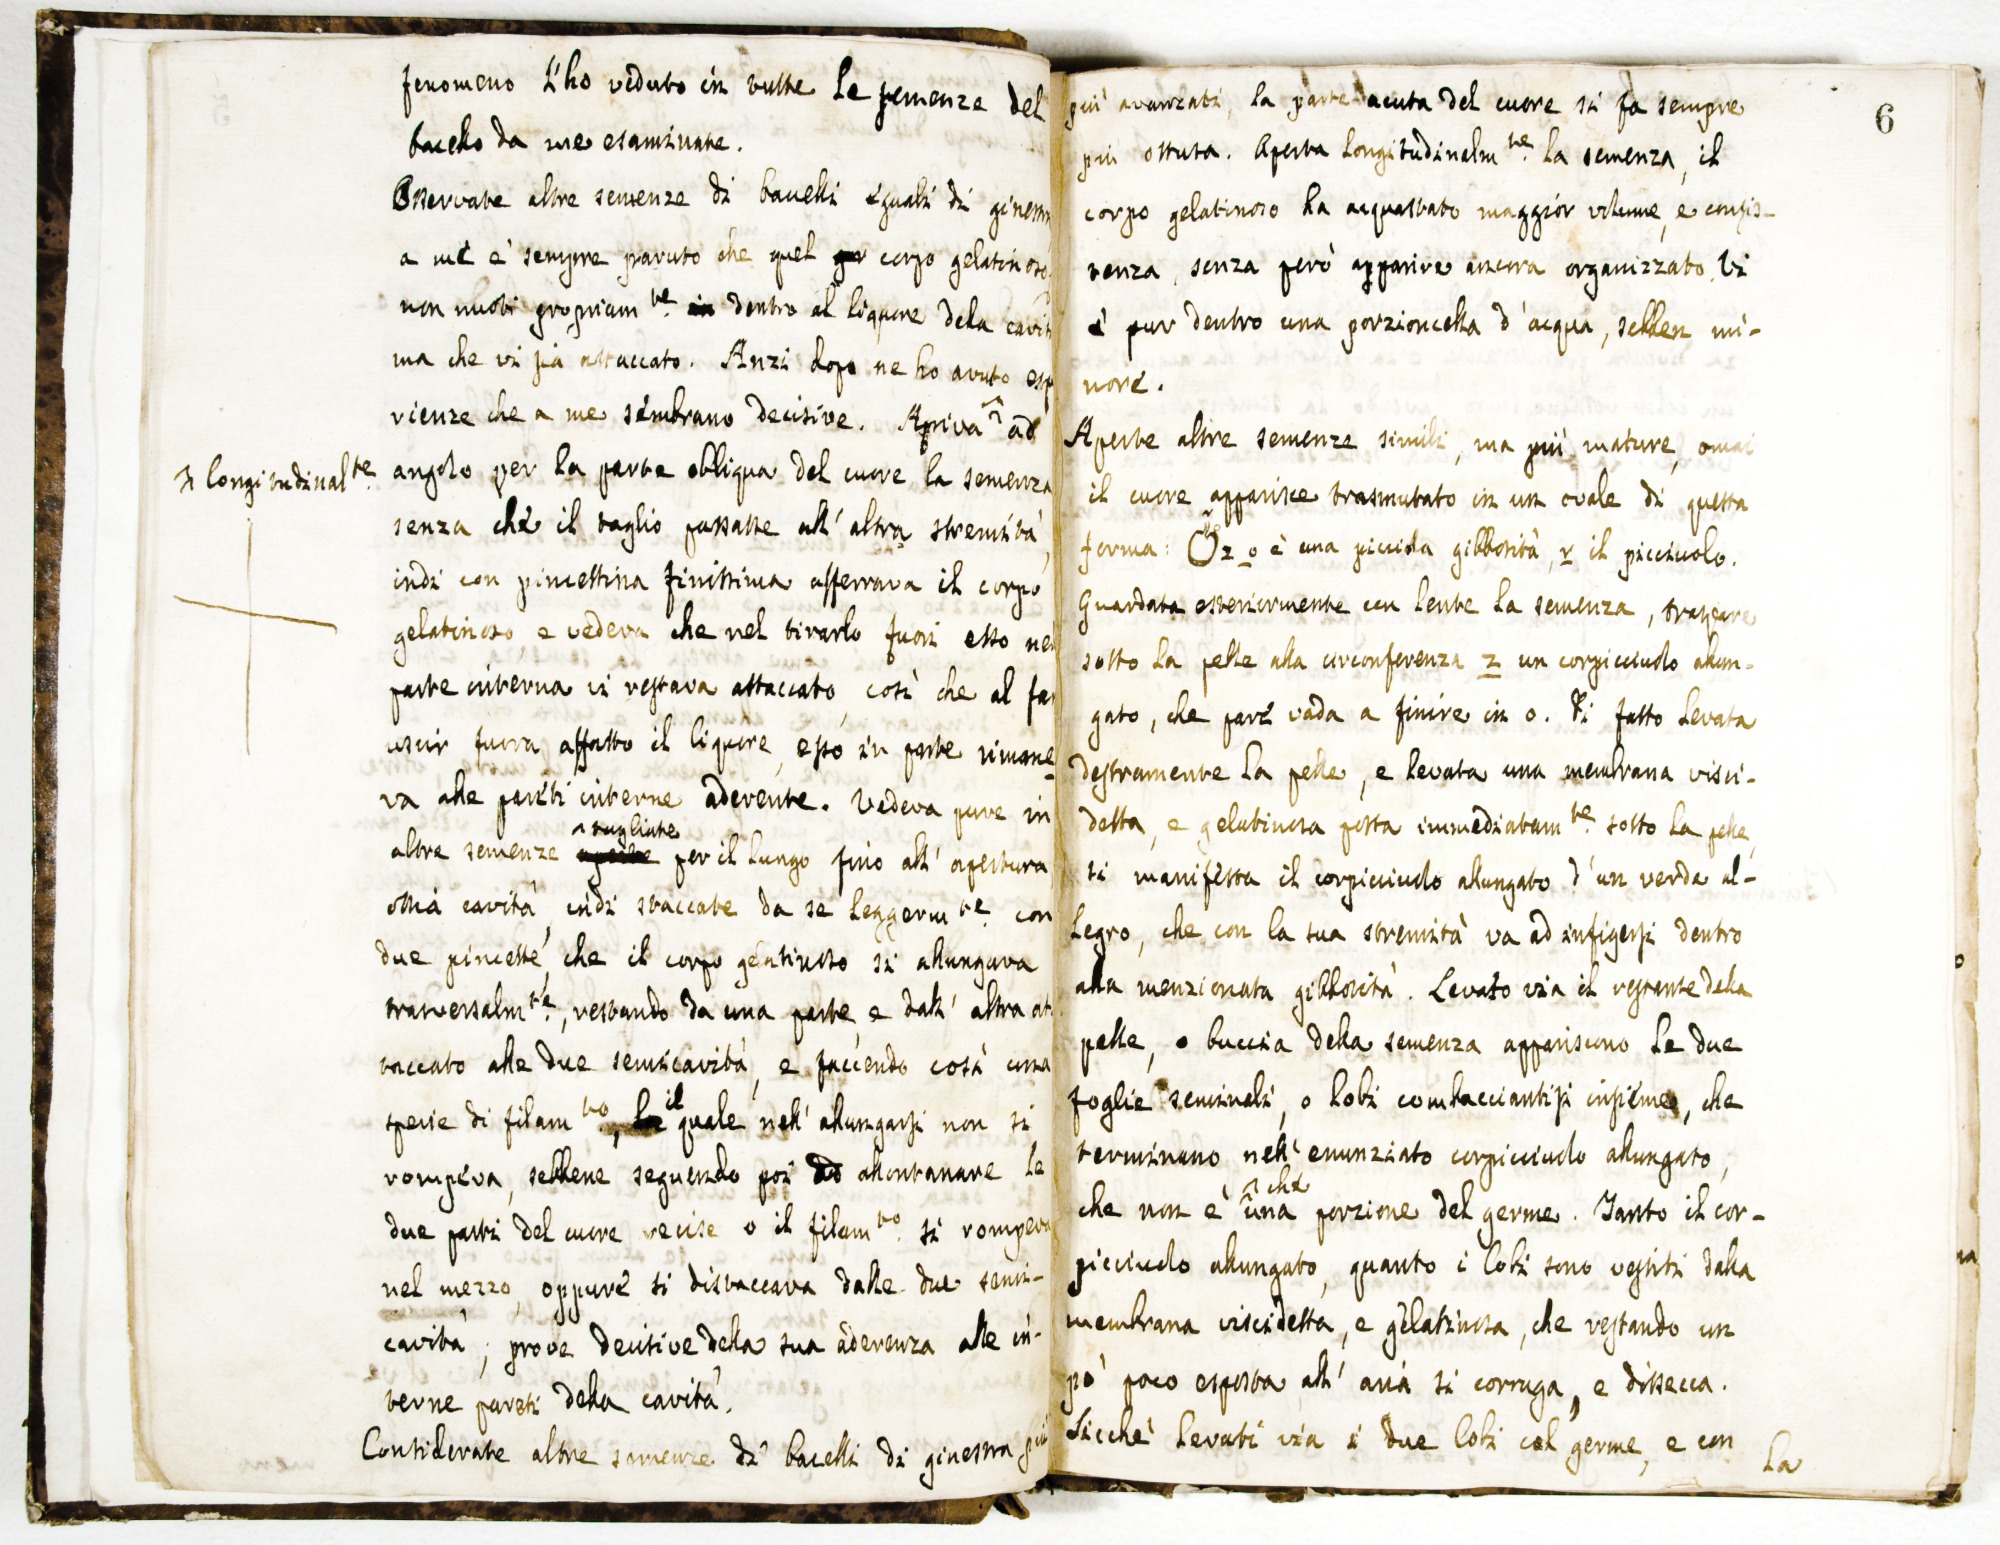 fenomeno l'ho veduto in tutte le semenze del
bacello da me esaminate.
Osservate altre semenze di bacelli eguali di ginestra
a me è sempre paruto che quel corpo gelatinoso
non nuoti propriam.te dentro al liquore dela cavità
ma che vi sia attaccato. Anzi dopo ne ho avuto espe
rienze che a me sembrano decisive. Apriva ad
# longitudinal.te
angolo per la parte obliqua del cuore la semenza
senza che il taglio passasse all' altra stremità,
indi con pincettina finissima afferrava il corpo
gelatinoso, e vedeva che nel tirarlo fuori esso nella
parte interna vi restava attaccato, così che al far
uscir fuora affatto il liquore, esso in parte rimane
va alle pareti interne aderente. Vedeva pure in
altre semenze aperte ^ tagliate per il lungo fino all' apertura,
ossia cavità, indi staccate da se leggerm.te con
due pincette, che il corpo gelatinoso si allungava
trasversalm.te, restando da una parte e dall' altra at
taccato alle due semicavità, e faccendo così una
specie di filam.to, la il quale nell' allungarsi non si
rompeva, sebbene seguendo poi ad allontanare le
due parti del cuore recise o il filam.to si rompeva
nel mezzo, oppure si distaccava dalle due semi-
cavità; prove decisive della sua aderenza alle in-
terne pareti della cavità.
Considerate altre semenze di bacelli di ginestra più
6
più avanzati, la parte acuta del cuore si fa sempre
più ottusa. Aperta longitudinalm.te la semenza, il
corpo gelatinoso ha acquastato maggior volume, e consis-
tenza, senza però apparire ancora organizzato. Vi
è pur dentro una porzioncella d'acqua, sebben mi-
nore.
Aperte altre semenze simili, ma più mature, omai
il cuore apparisce trasmutato in un ovale di questa
forma: z o è una picciola gibbosità, r il picciuolo.
Guardata esteriormente con lente la semenza, traspare
sotto la pelle alla circonferenza z un corpicciuolo allun-
gato, che pare vada a finire in o. Di fatto levata
destramente la pelle, e levata una membrana visci-
detta, e gelatinosa posta immediatam.te sotto la pelle,
si manifesta il corpicciuolo allungato d'un verde al-
legro, che con la sua stremità va ad infigersi dentro
alla menzionata gibbosità. Levato via il restante della
pelle, o buccia della semenza appariscono le due
foglie seminali, o lobi combacciantisi insieme, che
terminano nell' enunziato corpicciuolo allungato,
che non è ^ che una porzione del germe. Tanto il cor-
picciuolo allungato, quanto i lobi sono vestiti dalla
membrana viscidetta, e gelatinosa, che restando un
pò poco esposta all' aria si corruga, e dissecca.
Sicchè levati via i due lobi col germe, e con
la